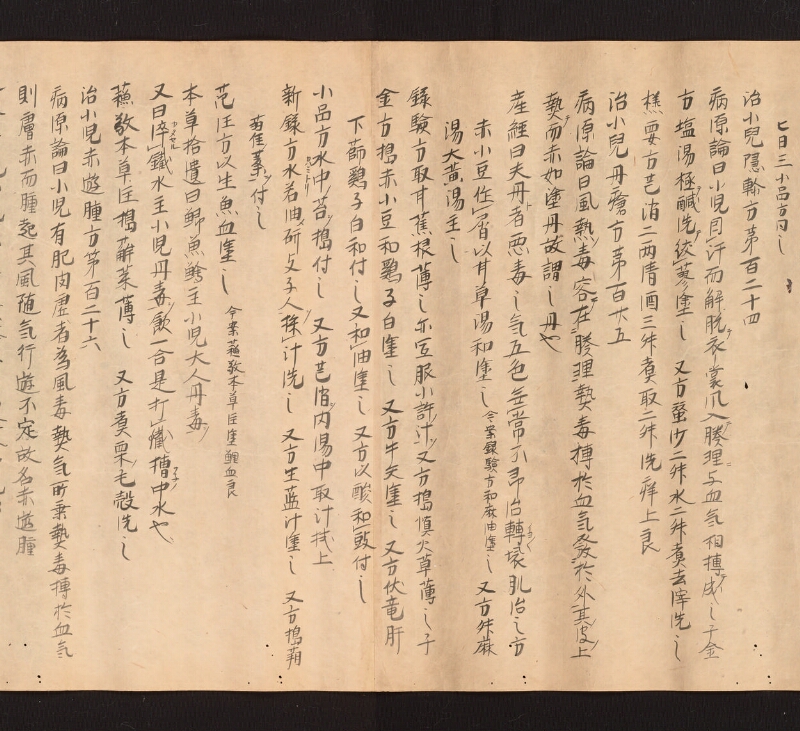 七日三小品方同之
治小児隠軫方第百二十四
病源論曰小児因汗而解脱衣裳風入腠理与血気相搏成之千金
方塩湯極鹹洗絞蓼塗之又方蚕沙二升水二升煮去滓洗之
極要方芒消二両清酒三升煮取二升洗痒上良
治小児丹瘡方第百廿五
病源論曰風熱毒客在腠理熱毒搏於血気発於外其皮上
熱而赤如塗丹故謂之丹也
産経曰夫丹者悪毒之気五色無常不即治轉壊乱治之方
赤小豆作屑以甘草湯和塗之今案録験方和麻油塗之又方升麻
湯大黄湯主之
録験方取甘蕉根薄之亦宜服小許汁又方搗慎火草薄之千
金方搗赤小豆和鶏子白塗之又方牛矢塗之又方伏竜肝
下篩鶏子白和付之又和油塗之又方以酸和豉付之
小品方水中苔搗付之又方芒消内湯中取汁拭上
新録方水若油研子人採汁洗之又方生藍汁塗之又方搗蒴
葉付之
范汪方以生魚血塗之今案蘇敬本草注塗鯽血良
本草拾遺曰鯽魚鱠主小児大人丹毒
又曰淬鐵水主小児丹毒飲一合是打鐵槽中水也
蘇敬本草注搗菜薄之又方煮栗毛殻洗之
治小児赤遊腫方第百二十六
病源論曰小児有肥肉虚者為風毒熱気所乗熱毒搏於血気
則膚赤而腫起其風随気行遊不定故名赤遊腫